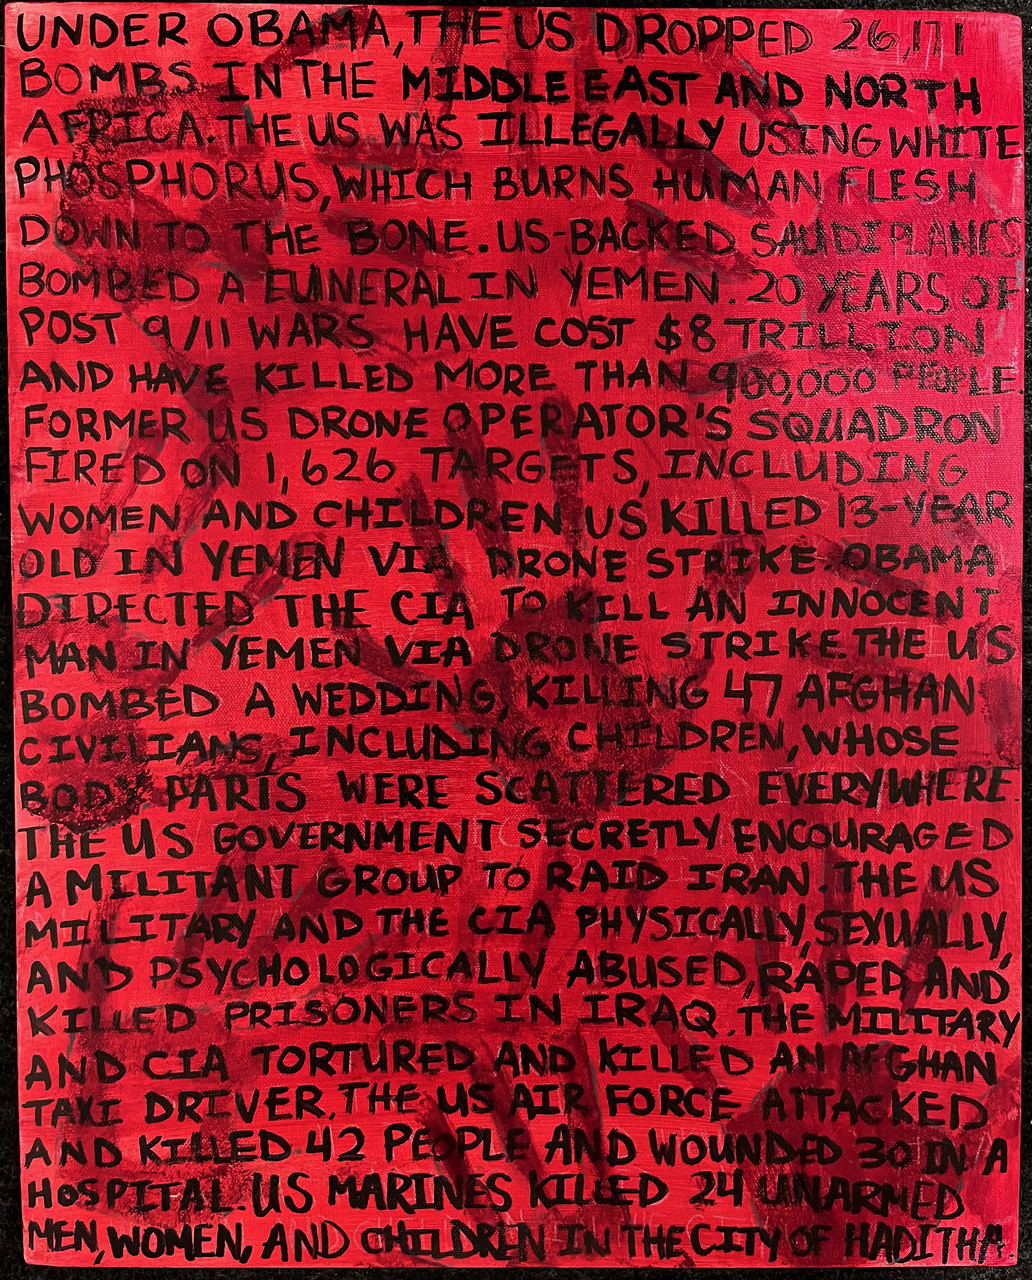 UNDER OBAMA, THE US DROPPED 26,171
BOMBS IN THE MIDDLE EAST AND NORTH
AFRICA. THE US WAS ILLEGALLY USING WHITE
PHOSPHORUS, WHICH BURNS HUMAN FLESH
DOWN TO THE BONE. US-BACKED SAUDI PLANES
BOMBED A FUNERAL IN YEMEN. 20 YEARS OF
POST 9/11 WARS HAVE COST $8 TRILLION
AND HAVE KILLED MORE THAN 900,000 PEOPLE.
FORMER US DRONE OPERATOR'S SQUADRON
FIRED ON 1,626 TARGETS, INCLUDING
WOMEN AND CHILDREN. US KILLED 13-YEAR
OLD IN YEMEN VIA DRONE STRIKE. OBAMA
DIRECTED THE CIA TO KILL AN INNOCENT
MAN IN YEMEN VIA DRONE STRIKE. THE US
BOMBED A WEDDING, KILLING 47 AFGHAN
CIVILIANS, INCLUDING CHILDREN, WHOSE
BODY PARTS WERE SCATTERED EVERYWHERE
THE US GOVERNMENT SECRETLY ENCOURAGED
A MILITANT GROUP TO RAID IRAN. THE US
MILITARY AND THE CIA PHYSICALLY, SEXUALLY,
AND PSYCHOLOGICALLY ABUSED, RAPED AND
KILLED PRISONERS IN IRAQ. THE MILITARY
AND CIA TORTURED AND KILLED AN AFGHAN
TAXI DRIVER. THE US AIR FORCE ATTACKED
AND KILLED 42 PEOPLE AND WOUNDED 30 IN A
HOSPITAL. US MARINES KILLED 24 UNARMED
MEN, WOMEN, AND CHILDREN IN THE CITY OF HADITHA.